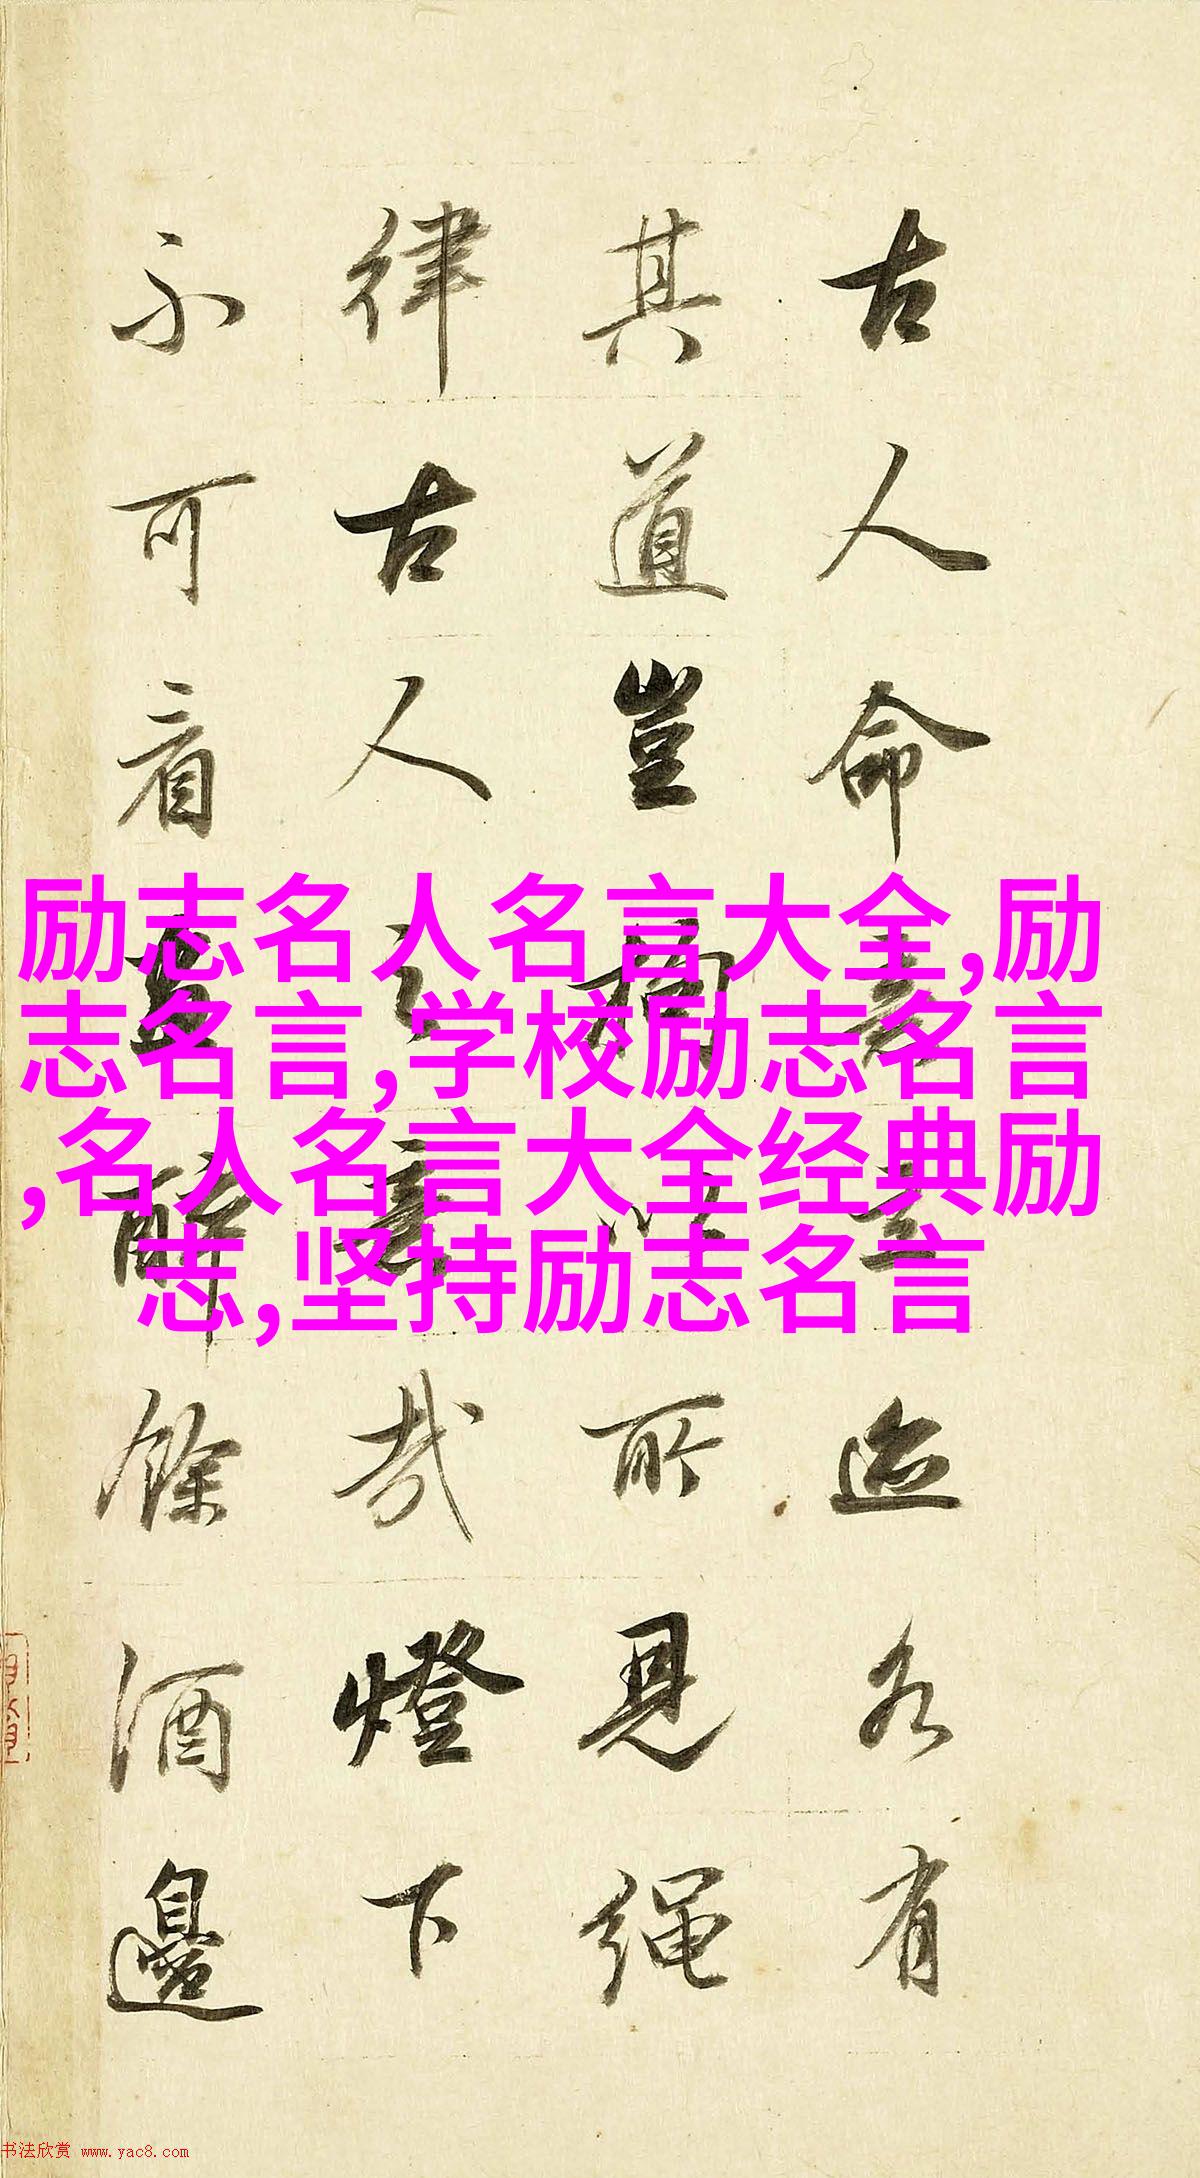 古人命意立迹各有
其道豈拘以所見繩
律古人之意哉燈下
不可看畫醉餘酒邊
励志名人名言大全,励
志名言,学校励志名言
,名人名言大全经典励
志,坚持励志名言
书法欣赏 www.yac8.com